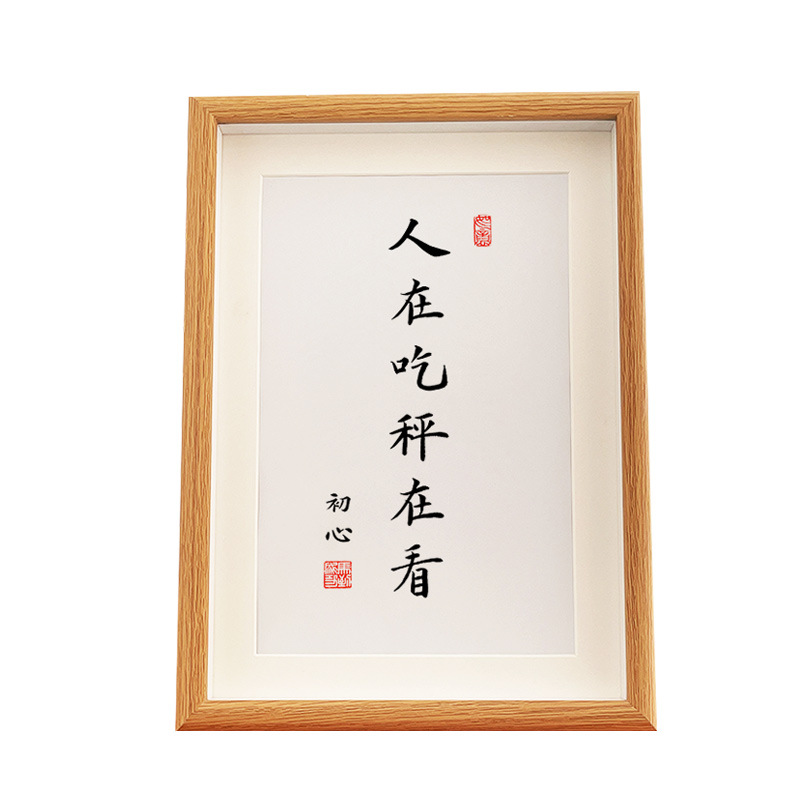 人在吃秤在看
初心